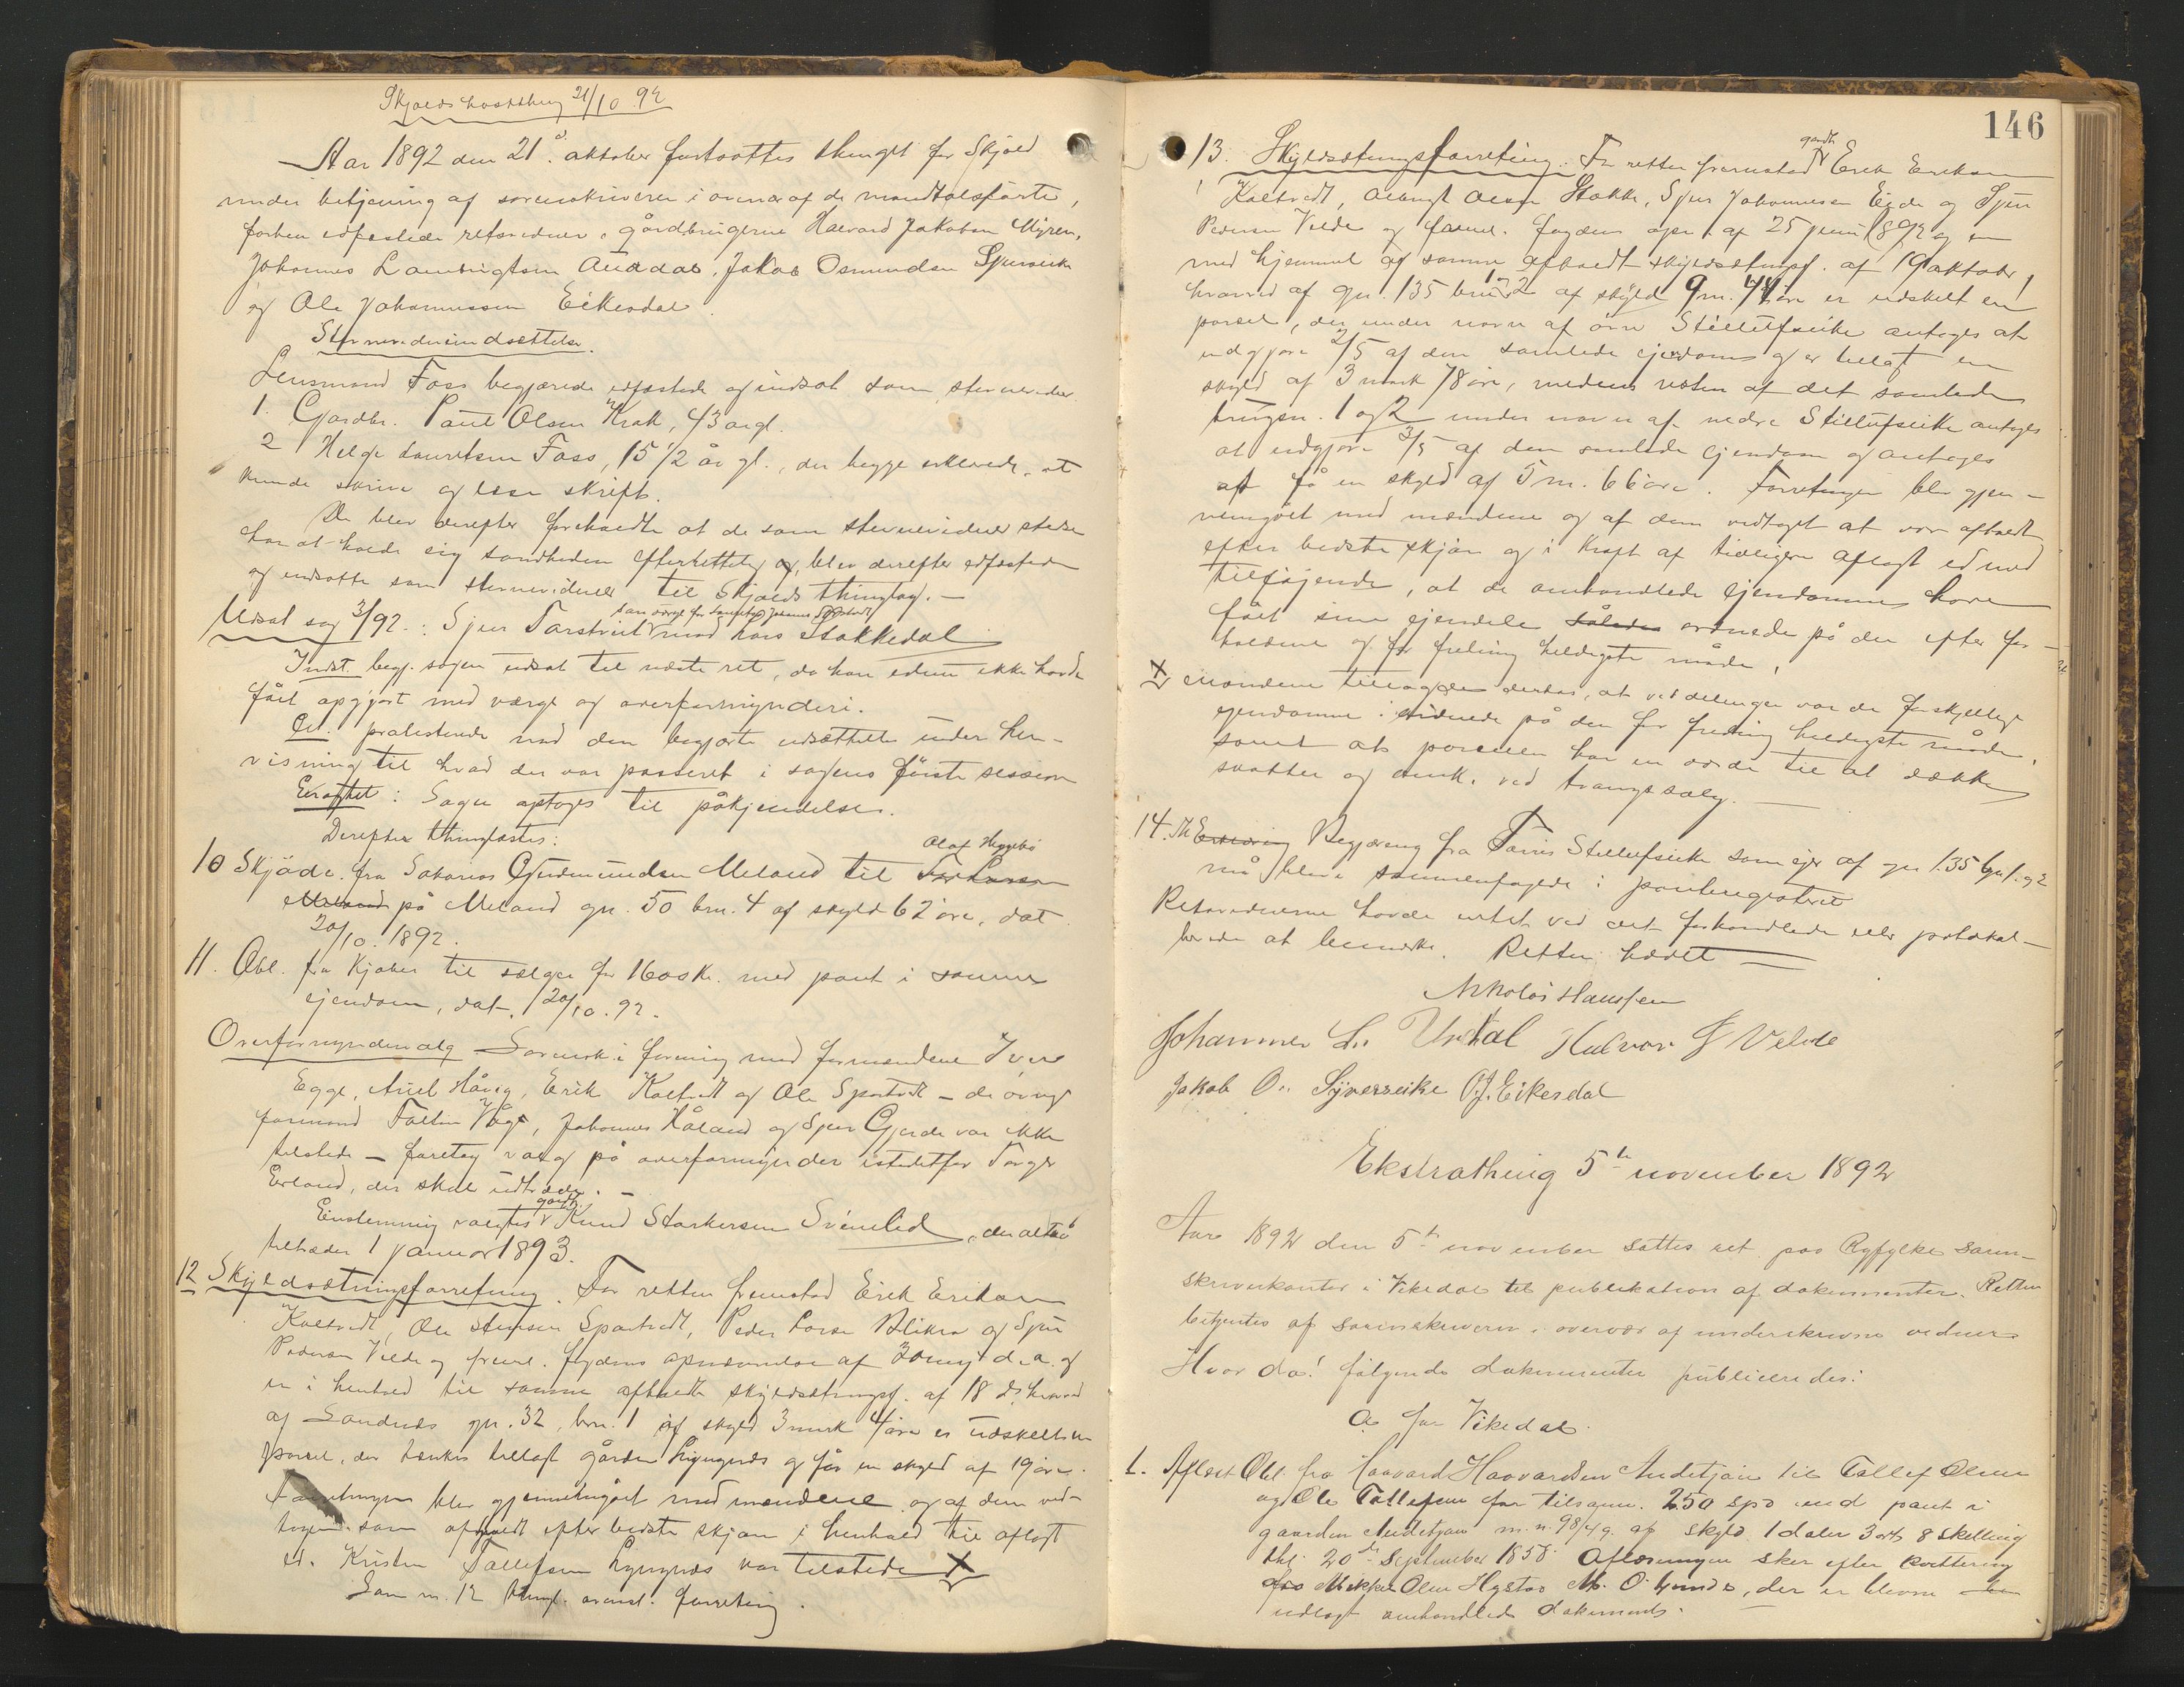 Skjolds høstthing 21/10 92
Aar 1892 den 21. oktober fortsattes thinget for Skjold
under betjening af sorenskriveren i overvær af de mandtalsførte,
forhen edfæstede retsvidner, gårdbrugerne Halvord Jakobsen Myren,
Johannes Lambrigtsen, Jakob Osmundsen
og Ole Johannessen Eikesdal.
Stevnevidneindsættelse.
Lensmand Foss begjærede edfæstede og indsat som stevnevidner
1. Gårdbr. Paul Olsen Krak, 43 årgl.
2 Helge Lauritsen Foss, 15 1/2 år gl., der begge erklærede at
kunde skrive og læse skrift.
De blev derefter foreholdte at de som stevnevidner stedse
har at holde sig sandheden efterrettelig og blev derefter edfæstede
og indsatte som stevnevidner til Skjolds thinglag. —
Udsat sag 3/92.: Sjur Tarstveit mod Lars Stakkedal
Indst. begj. sagen udsat til næste ret, da han endnu ikke havde
fået opgjort med værge og overformynderi.
Cit. protesterede mod den begjærte udsættelse under hen-
visning til hvad der var passeret i sagens første session
Eragtet: Sagen optages til påkjendelse.
Derefter thinglæstes:
Olaf Heggebø
10 Skjøde fra Sakarias Gudmundsen Meland til
Meland på Meland gn. 50 brn. 4 af skyld 62 øre, dat.
20/10. 1892.
11. Obl. fra Kjøber til sælger for 1600 Kr. med pant i samme
ejendom, dat. 20/10. 92.
Overformyndervalg Sorensk. i forening med formændene Iver
Egge, Håvig, Erik Kaltvedt og Ole Spartvedt — de øvrige
formænd Våge, Johannes Håland og Sjur Gjerde var ikke
tilstede — foretog valg på overformynder istedetfor Torger
Erland, der skal udtræde. —
Enstemmig valgtes gårdbr. Knud Starkersen Svinelid, der
tiltræder 1 januar 1893.
12 Skyldsætningsforretning. For retten fremstod Erik Eriksen
Kaltvedt, Ole Spartvedt, Peder Blikra og Sjur
Pedersen Velde og freml. fogdens opnævnelse af d. a. og
en i henhold til samme afholdt skyldsætningsf. af 18 ds. hvorved
af Sandnes gn. 32, brn. 1 af skyld 3 mark 4 øre er udskilt en
parsel, der tænkes tillagt gården Lyngnes og får en skyld af 19 øre.
Forretningen blev gjennemgået med mændene og af dem ved-
tagen som afholdt efter bedste skjøn i henhold til aflagt
ed. Kristen Tallefsen Lyngnes var tilstede X
Som nr. 12 thingl. forretning.
146
13. Skyldsætningsforretning. For retten fremstod gårdbr. Erik Eriksen
Kaltvedt, Stakke, Sjur Johannessen Eide og Sjur
Pedersen Velde og freml. fogdens opn. af 25 juni 1892 og en
med hjemmel af samme afholdt skyldsætningsf. af 19 oktober,
hvorved af gn. 135 brn. 1 og 2 af skyld 9 m. 44 øre er udskilt en
parsel, der under navn af øvre Stillufseike antages at
udgjøre 2/5 af den samlede ejendom og er tillagt en
skyld af 3 mark 78 øre, medens resten af det samlede
brugsn. 1 og 2 under navn af nedre Stillufseike antages
at udgjøre 3/5 af den samlede ejendom og antages
at få en skyld af 5 m. 66 øre. Forretningen blev gjen-
nemgået med mændene og af dem vedtaget at være afholdt
efter bedste skjøn og i kraft af tidligere aflagt ed med
tilføjende, at de omhandlede ejendomme have
fået sine ejendele således ordnede på den efter for-
holdene og for fredning heldigste måde.
X Mændene tillagde derhos, at ved delingen var de forskjellige
ejendomme ordnede på den for fredning heldigste måde,
samt at parselen har en værdi til at dække
skatter og omk. ved tvangssalg. —
14. Th. Begjæring fra Tørris Stillufseike som ejer af gn 135 bn 1. og 2
må blive sammenføjede i panteregisteret
Retsvidnerne havde intet ved det forhandlede eller protokol-
lerede at bemærke. Retten hævet
Nikolai Hanssen
Johannes L. Urdal Halvor J Velde
Jakob O. Syverseike O. J. Eikesdal
Ekstrathing 5te november 1892
Aar 1892 den 5te november sattes ret paa Ryfylke soren-
skriverkontor i Vikedal til publikation af dokumenter. Retten
betjentes af sorenskriveren i overvær af underskrevne vidner
Hvor da! følgende dokumenter publiceredes:
a for Vikedal.
1. Aflæst Obl. fra Haavard Haavardsen Andetjøn til Tollef Olsen
og Ole Tollefsen for tilsamm. 250 spd med pant i
gaarden Andetjøn m. n. 98/49. af skyld 1 daler 3 ort 8 skilling
thl. 20de September 1858. Aflæsningen sker efter kvittering
fra Mikkel Olsen M. O. Lunde, der er bleven
udlagt omhandlede dokument.